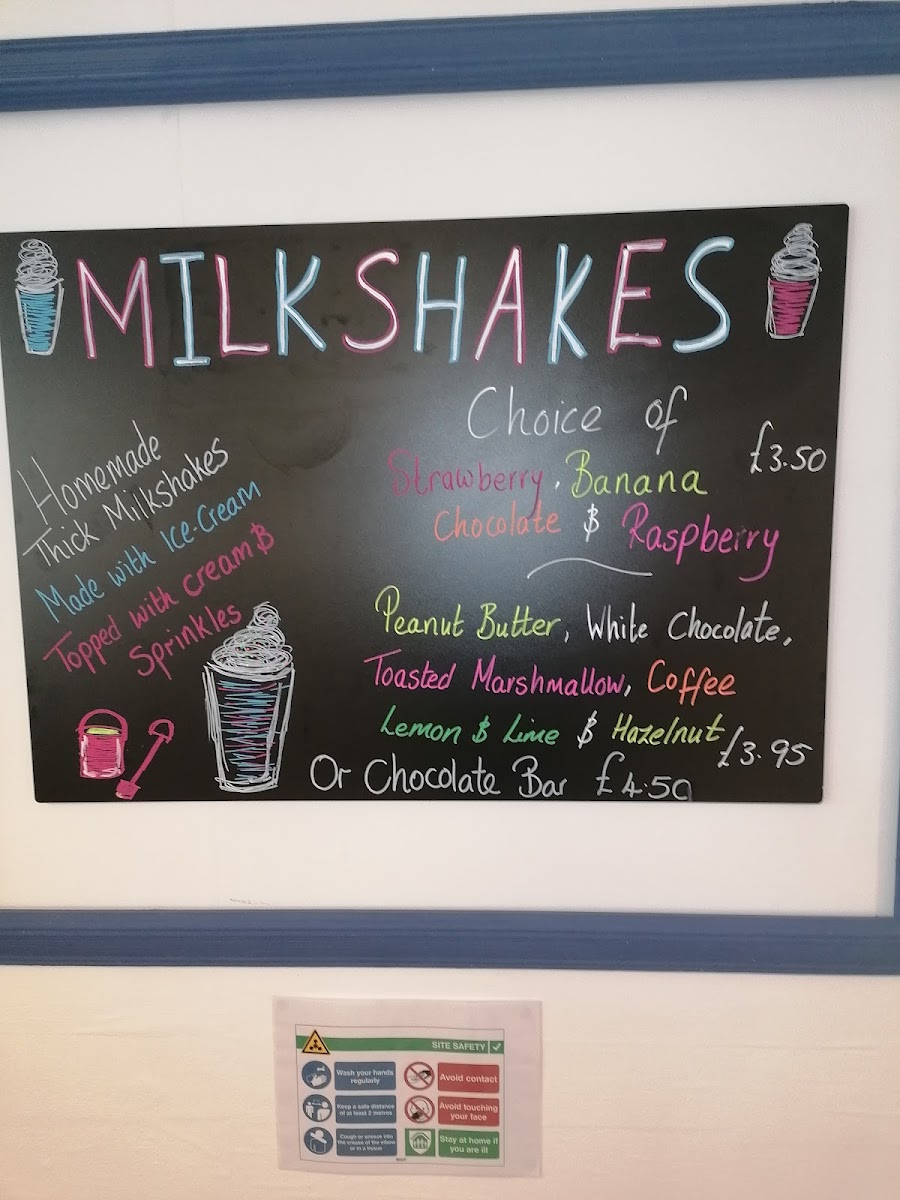 MILKSHAKES
Homemade
Thick Milkshakes
Made with Ice-Cream
Topped with cream &
Sprinkles
Choice of
£3.50
Strawberry, Banana
Chocolate & Raspberry
Peanut Butter, White Chocolate,
Toasted Marshmallow, Coffee
Lemon & Lime & Hazelnut
£3.95
Or Chocolate Bar £4.50
SITE SAFETY
Wash your hands
regularly
Avoid contact
Keep a safe distance
of at least 2 metres
Avoid touching
your face
Cough or sneeze into
the crease of the elbow
or in a tissue
Stay at home if
you are ill